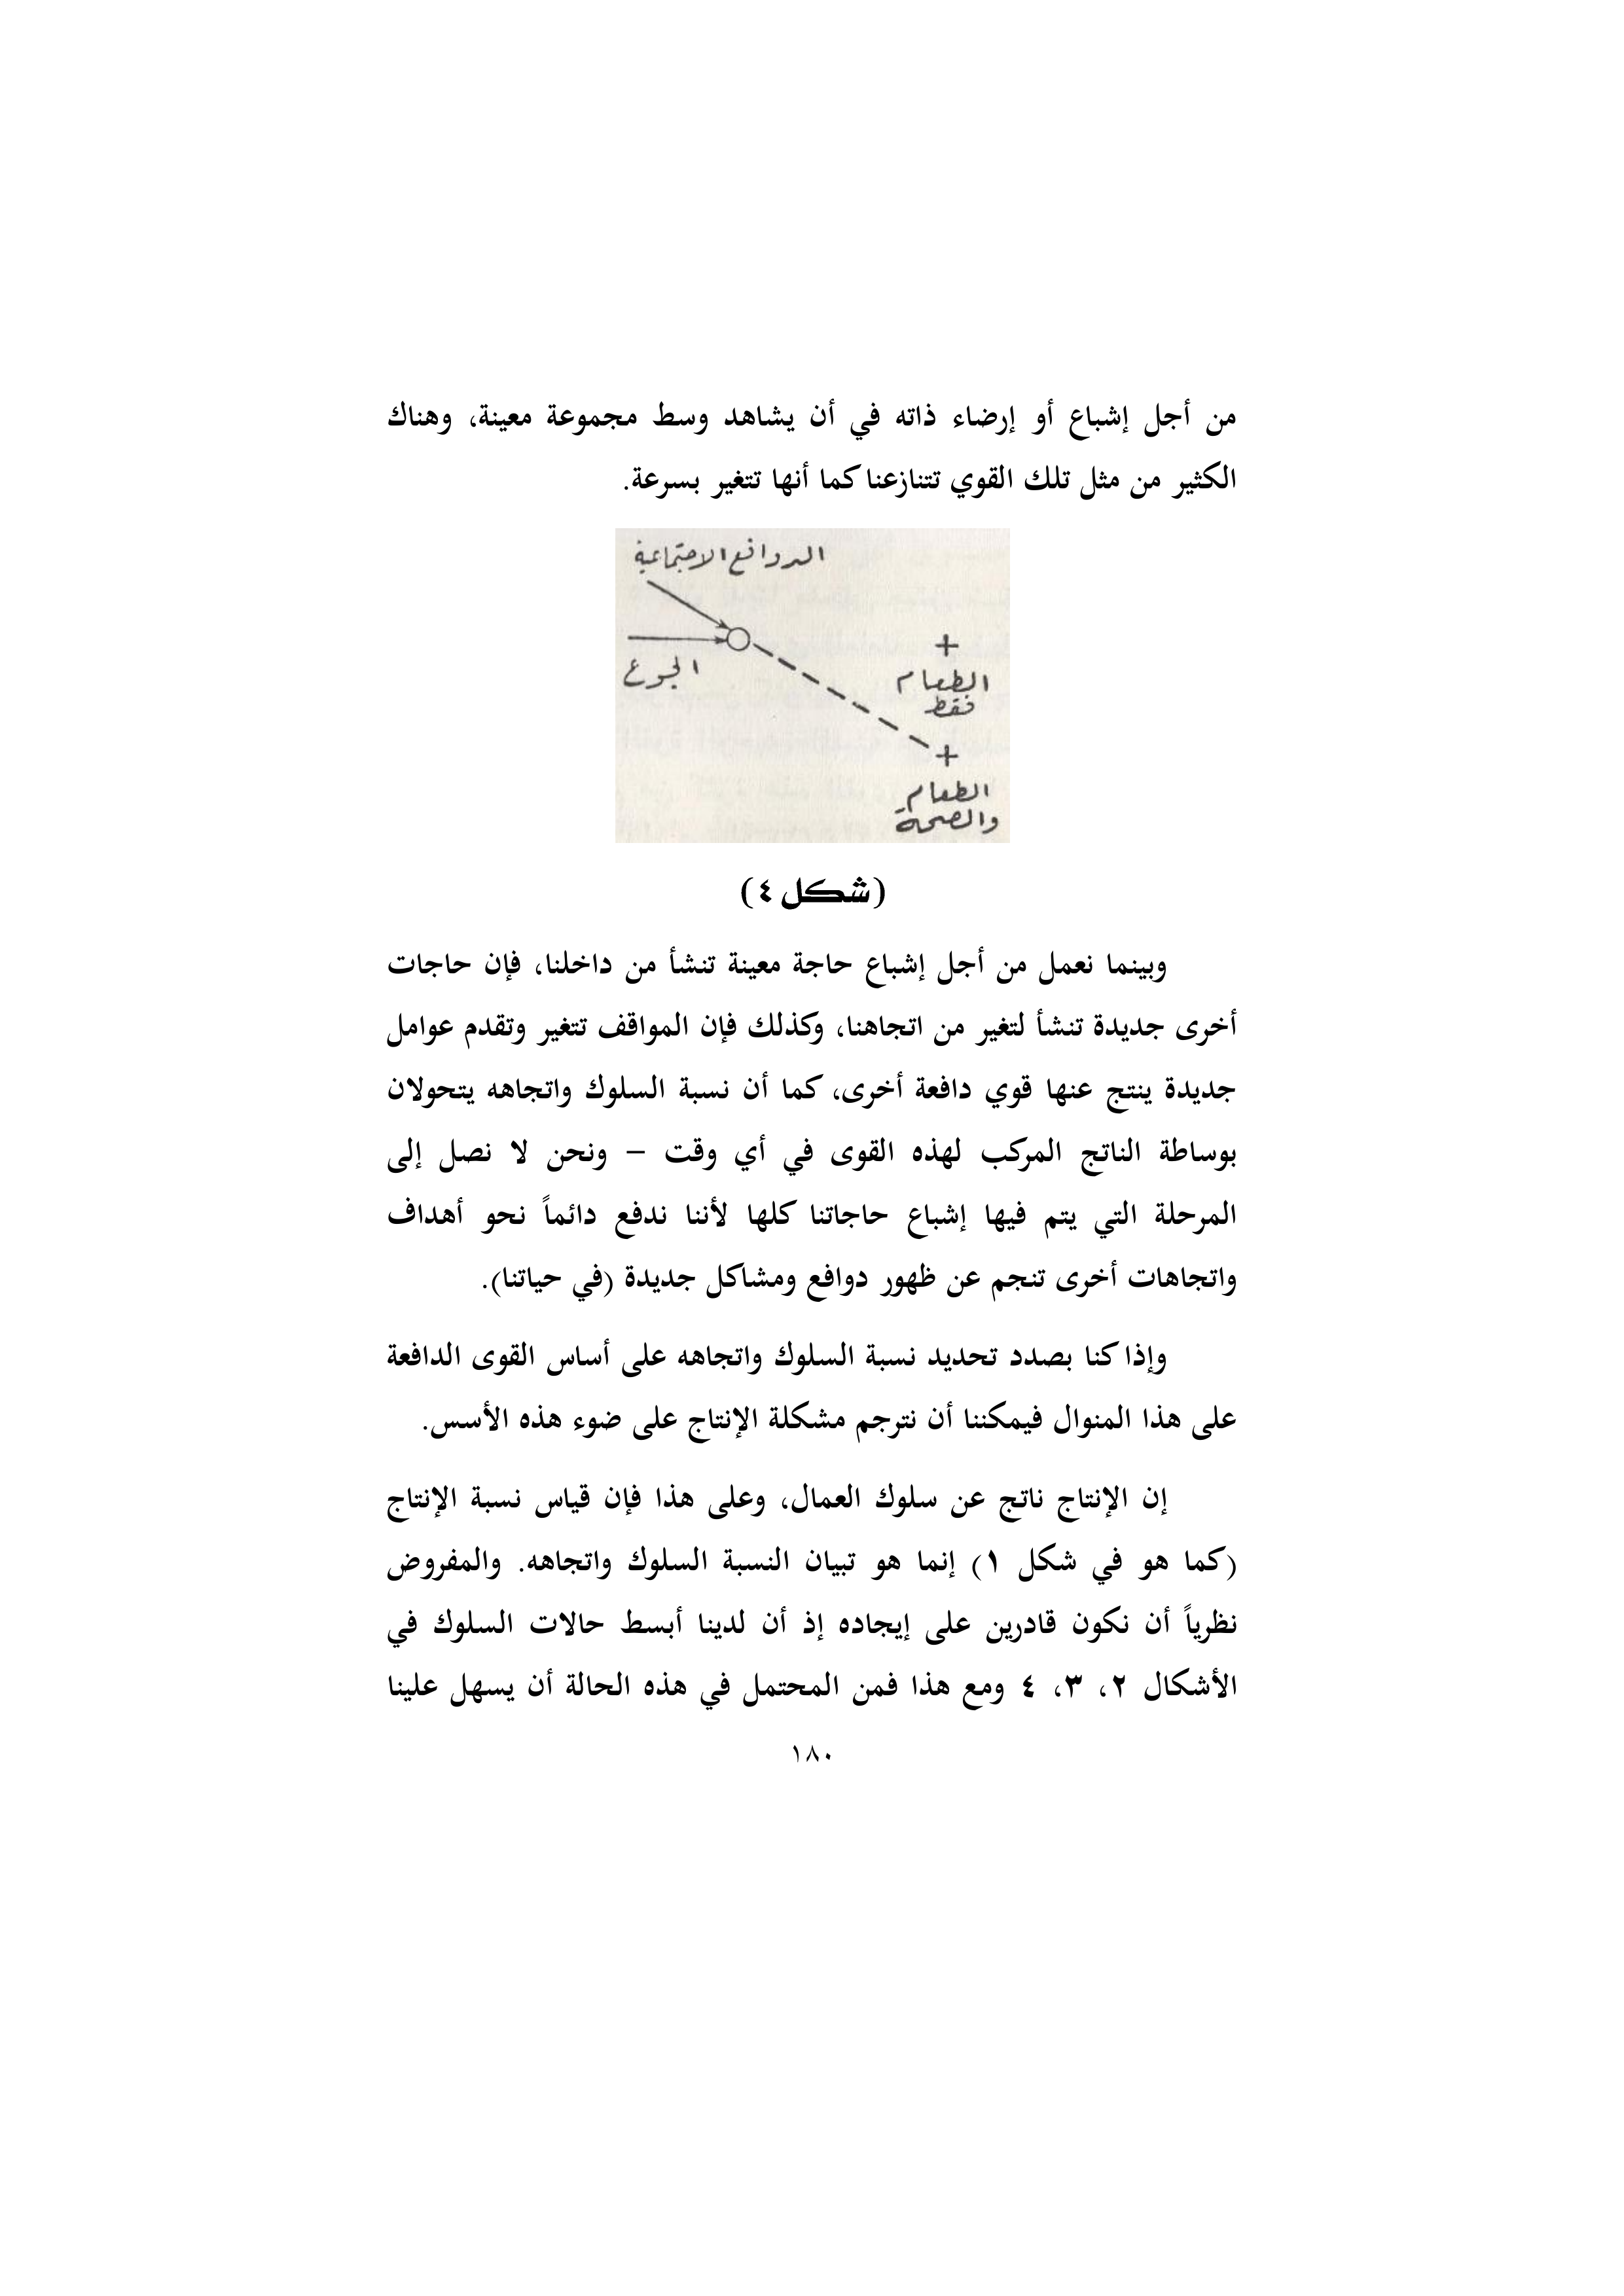 من أجل إشباع أو إرضاء ذاته في أن يشاهد وسط مجموعة معينة، وهناك
الكثير من مثل تلك القوي تتنازعنا كما أنها تتغير بسرعة.
الدوافع الاجتماعية
الجوع
+
الطعام
فقط
+
الطعام
والصحة
(شكل ٤)
وبينما نعمل من أجل إشباع حاجة معينة تنشأ من داخلنا، فإن حاجات
أخرى جديدة تنشأ لتغير من اتجاهنا، وكذلك فإن المواقف تتغير وتقدم عوامل
جديدة ينتج عنها قوي دافعة أخرى، كما أن نسبة السلوك واتجاهه يتحولان
بوساطة الناتج المركب لهذه القوى في أي وقت – ونحن لا نصل إلى
المرحلة التي يتم فيها إشباع حاجاتنا كلها لأننا ندفع دائماً نحو أهداف
واتجاهات أخرى تنجم عن ظهور دوافع ومشاكل جديدة (في حياتنا).
وإذا كنا بصدد تحديد نسبة السلوك واتجاهه على أساس القوى الدافعة
على هذا المنوال فيمكننا أن نترجم مشكلة الإنتاج على ضوء هذه الأسس.
إن الإنتاج ناتج عن سلوك العمال، وعلى هذا فإن قياس نسبة الإنتاج
(كما هو في شكل ١) إنما هو تبيان النسبة السلوك واتجاهه. والمفروض
نظرياً أن نكون قادرين على إيجاده إذ أن لدينا أبسط حالات السلوك في
الأشكال ٢، ٣، ٤ ومع هذا فمن المحتمل في هذه الحالة أن يسهل علينا
١٨٠